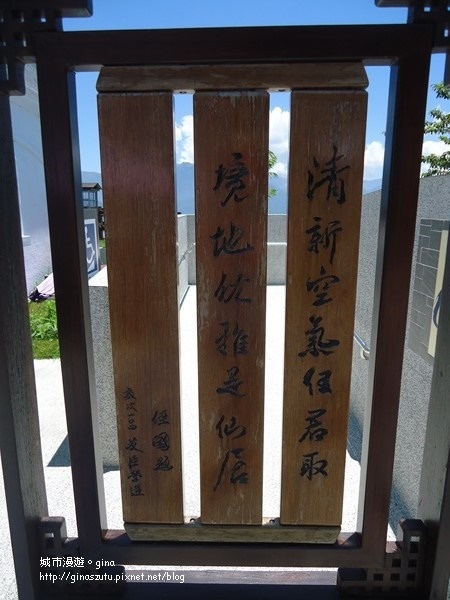 清新空氣任君取
境地優雅是仙居
任國
城市漫遊。gina
http://ginaszutu.pixnet.net/blog